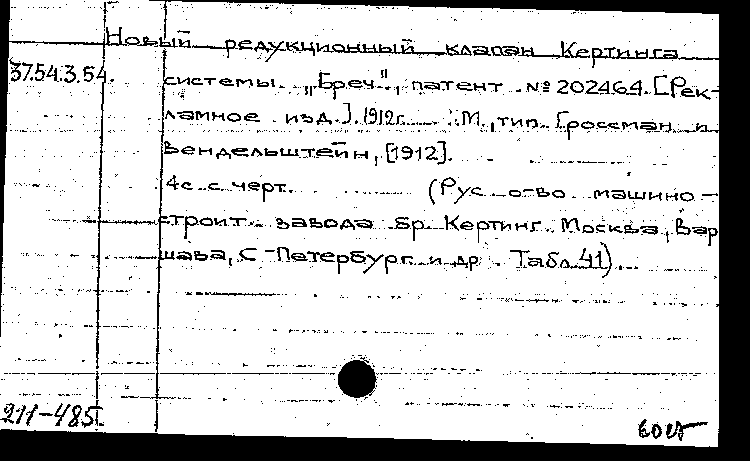 Новый редукционный клапан Кертинга
37.54.3.54. системы „Бреч", патент №202464. [Рек-
ламное изд.]. 1912г. М., тип. Гроссман и
Вендельштейн, [1912].
4с. с черт. (Рус. о-во машино-
строит. завода бр. Кертинг. Москва, Вар
шава, С-Петербург и др. Табл.41).
211-485